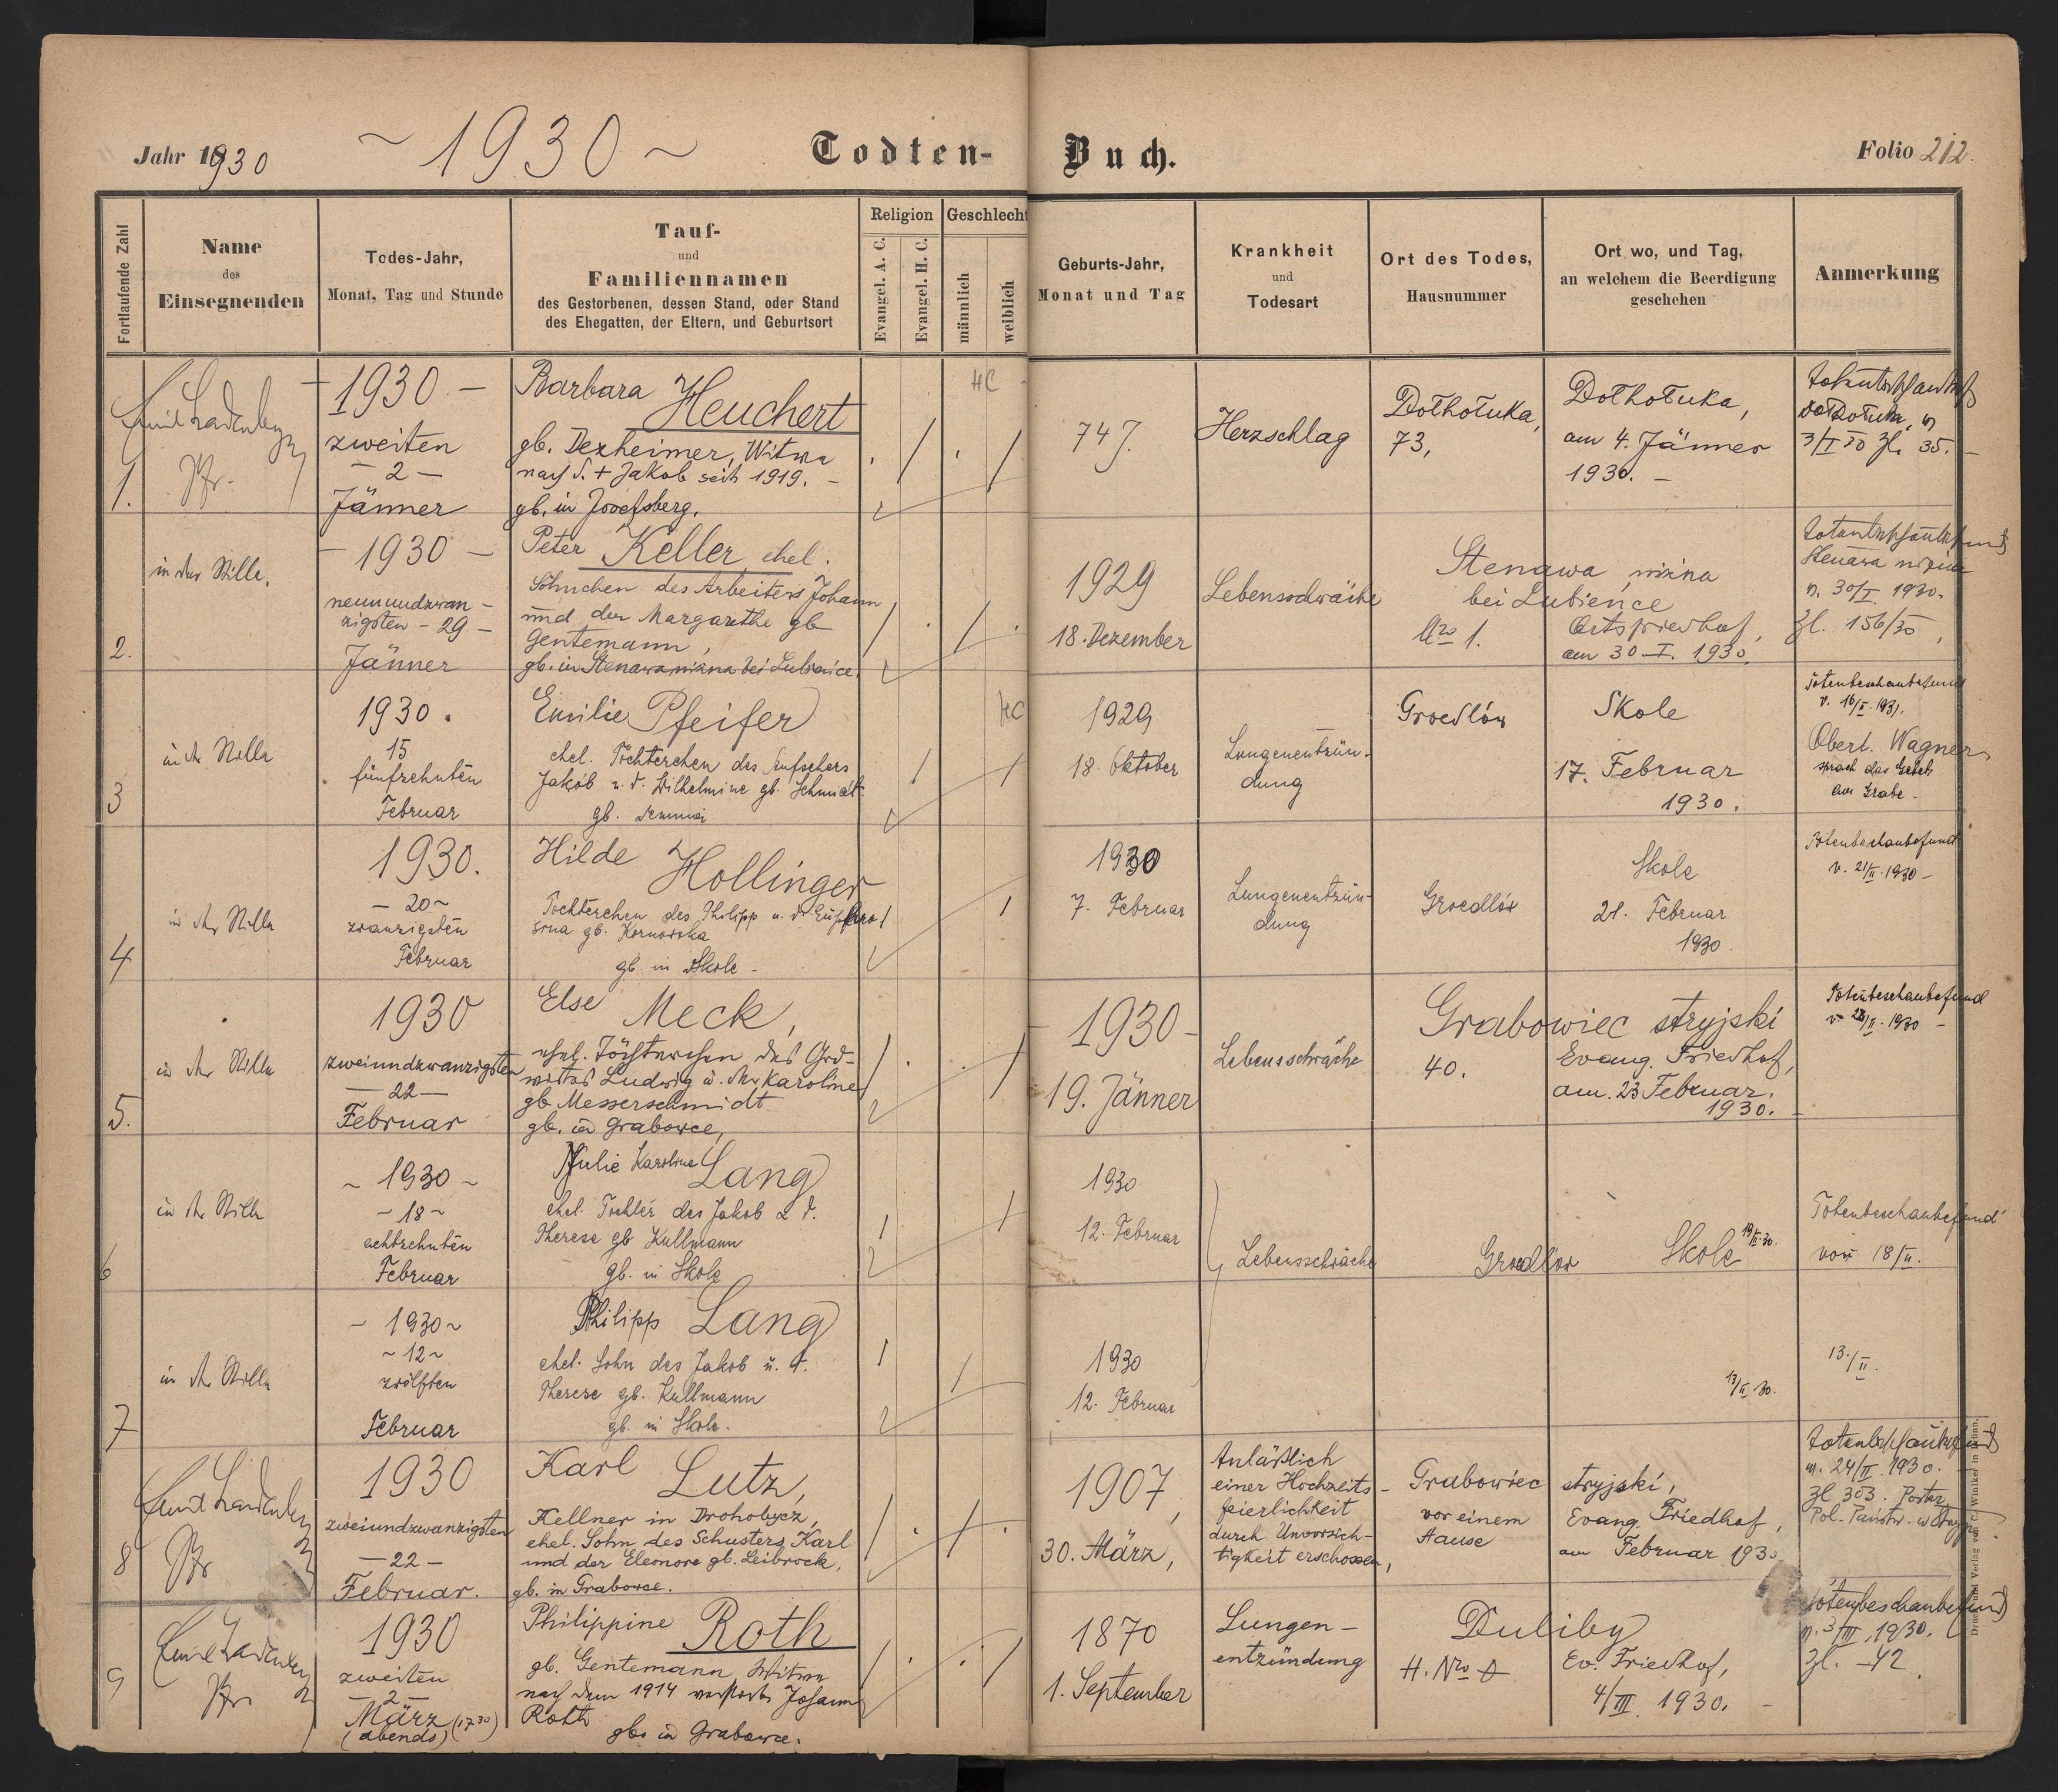 Jahr 1930
~ 1930 ~
Todten-
Buch.
Folio 212.
Fortlaufende Zahl
Name
des
Einsegnenden
Todes-Jahr,
Monat, Tag und Stunde
Tauf-
und
Familiennamen
des Gestorbenen, dessen Stand, oder Stand
des Ehegatten, der Eltern, und Geburtsort
Religion
Evangel. A. C.
Evangel. H. C.
Geschlecht
männlich
weiblich
Geburts-Jahr,
Monat und Tag
Krankheit
und
Todesart
Ort des Todes,
Hausnummer
Ort wo, und Tag,
an welchem die Beerdigung
geschehen
Anmerkung
1.
Emil Ladenberger
Pfr.
– 1930 –
zweiten
– 2 –
Jänner
Barbara Heuchert
gb. Dexheimer, Witwe
nach d. + Jakob seit 1919. –
gb. in Josefsberg.
HC
74 J.
Herzschlag
73,
am 4. Jänner
1930. –
3/I 30 Zl. 35. –
2.
in der Stille.
– 1930 –
neunundzwan-
zigsten – 29 –
Jänner
Peter Keller, ehel.
Söhnchen des Arbeiters Johann
und der Margarethe gb
Gentemann,
gb. in Stenawa nizna bei Lubience.
1929
18. Dezember
Lebensschwäche
Stenawa nizna
bei Lubience
Nro 1.
Ortsfriedhof,
am 30–I. 1930,
Totenbeschaubefund
Stenawa nizna
v. 30/I. 1930.
Zl. 156/30
3
in der Stille
1930.
15
fünfzehnten
Februar
Emilie Pfeifer
ehel. Töchterchen des Aufsehers
Jakob u. d. Wilhelmine gb. Schmidt
gb.
HC
1929
18. Oktober
Lungenentzün-
dung
Groedlów
Skole
17. Februar
1930.
Totenbeschaubefund
v. 16/II. 1931.
Oberl. Wagner
sprach das Gebet
am Grabe –
4
in der Stille
1930.
– 20 ~
zwanzigsten
Februar
Hilde Hollinger
Töchterchen des Philipp u. d. Eufro
sina gb. Kornowska
gb. in Skole –
1930
7. Februar
Lungenentzün-
dung
Groedlów
Skole
21. Februar
1930.
Totenbeschaubefund
v. 21/II. 1930 –
5.
in der Stille
1930
zweiundzwanzigsten
– 22 –
Februar
Else Meck,
ehel. Töchterchen des Grd-
wirtes Ludwig u. der Karoline
gb Messerschmidt
gb. in Grabowce,
– 1930 –
19. Jänner
Lebensschwäche
Grabowiec stryjski
40.
Evang. Friedhof,
am. 23 Februar.
1930.
Totenbeschaubefund
v. 23/II. 1930 –
6
in der Stille
~ 1930 ~
~ 18 ~
achtzehnten
Februar
Julie Karoline Lang
ehel. Tochter des Jakob u d.
Therese gb Kullmann
gb. in Skole
1930
12. Februar
Lebensschwäche
Groedlów
Skole 19/II 30.
Totenbeschaubefund
vom 18/II.
7
in der Stille
~ 1930 ~
~ 12 ~
zwölften
Februar
Philipp Lang
ehel. Sohn des Jakob u. d.
Therese gb. Kullmann
gb. in Skole.
1930
12. Februar
13/II 30.
13./II.
8
Emil Ladenberger
Pfr
1930
zweiundzwanzigsten
– 22 –
Februar.
Karl Lutz,
Kellner in Drohobycz,
ehel. Sohn des Schusters Karl
und der Eleonore gb. Leibrock,
gb. in Grabowce.
1907,
30. März,
Anläßlich
einer Hochzeits-
feierlichkeit
durch Unvorsich-
tigkeit erschossen,
Grabowiec stryjski,
vor einem
Hause
Evang. Friedhof,
am Februar 1930
Totenbeschaubefund
v. 24/II. 1930.
Zl 303.
9
Emil Ladenberger
Pfr
1930
zweiten
– 2 –
März (17 30)
(abends)
Philippine Roth
gb. Gentemann, Witwe
nach dem 1914 verstorb. Johann
Roth
gb. in Grabowce.
1870
1. September
Lungen-
entzündung
Duliby
H. Nro
Ev. Friedhof,
4/III 1930. –
Totenbeschaubefund
v. 3/III. 1930.
Zl. – 42